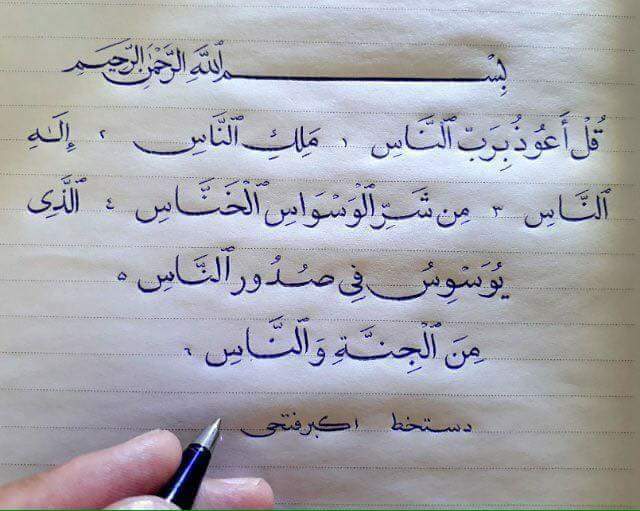 بِسْمِ ٱللَّهِ ٱلرَّحْمَٰنِ ٱلرَّحِيمِ
قُلْ أَعُوذُ بِرَبِّ ٱلنَّاسِ ١ مَلِكِ ٱلنَّاسِ ٢ إِلَٰهِ
ٱلنَّاسِ ٣ مِن شَرِّ ٱلْوَسْوَاسِ ٱلْخَنَّاسِ ٤ ٱلَّذِی
يُوَسْوِسُ فِی صُدُورِ ٱلنَّاسِ ٥
مِنَ ٱلْجِنَّةِ وَٱلنَّاسِ ٦
دستخط اکبر فتحی